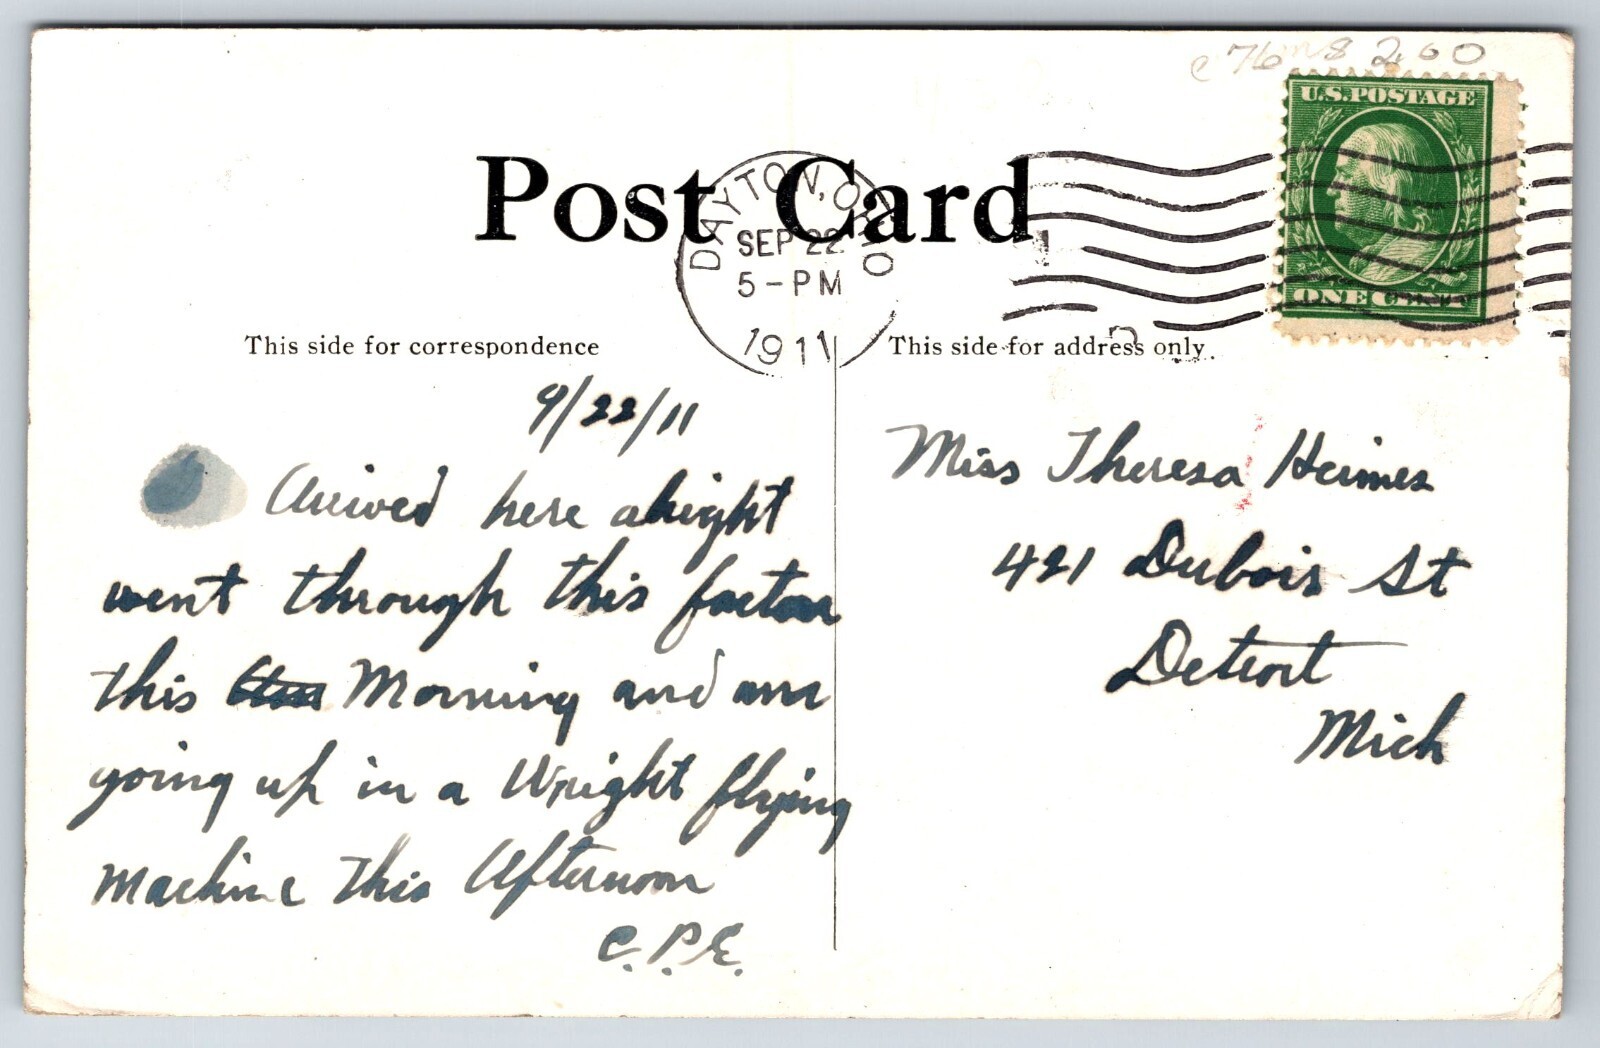 2.00
U.S. POSTAGE
ONE CENT
Post Card
DAYTON, OHIO
SEP 22
5-PM
1911
1
This side for correspondence
This side for address only.
9/22/11
Arrived here alright
went through this factory
this Morning and am
going up in a Wright flying
Machine this Afternoon
C.P.E.
Miss Theresa Heimes
421 Dubois St
Detroit
Mich